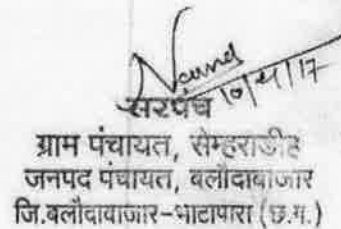 10/4/17
सरपंच
ग्राम पंचायत, सेम्हराडीह
जनपद पंचायत, बलौदाबाजार
जि.बलौदाबाजार-भाटापारा (छ.ग.)